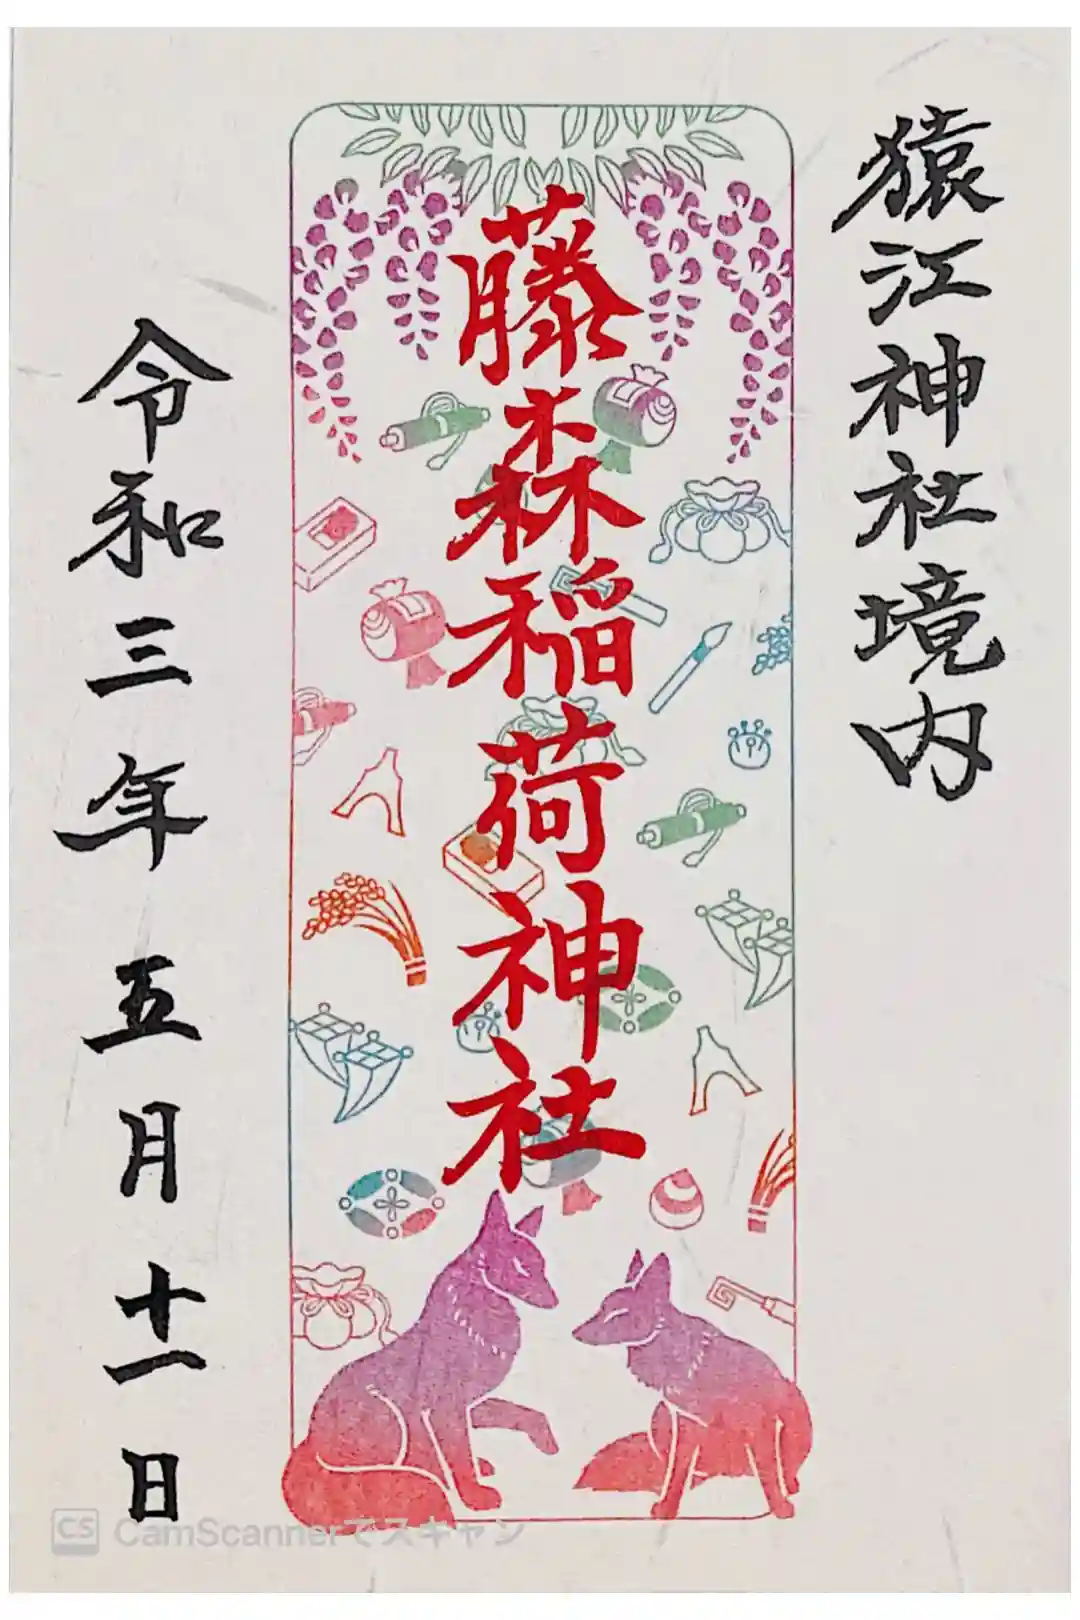 猿江神社境内
藤森稲荷神社
令和三年五月十一日
CS CamScannerでスキャン